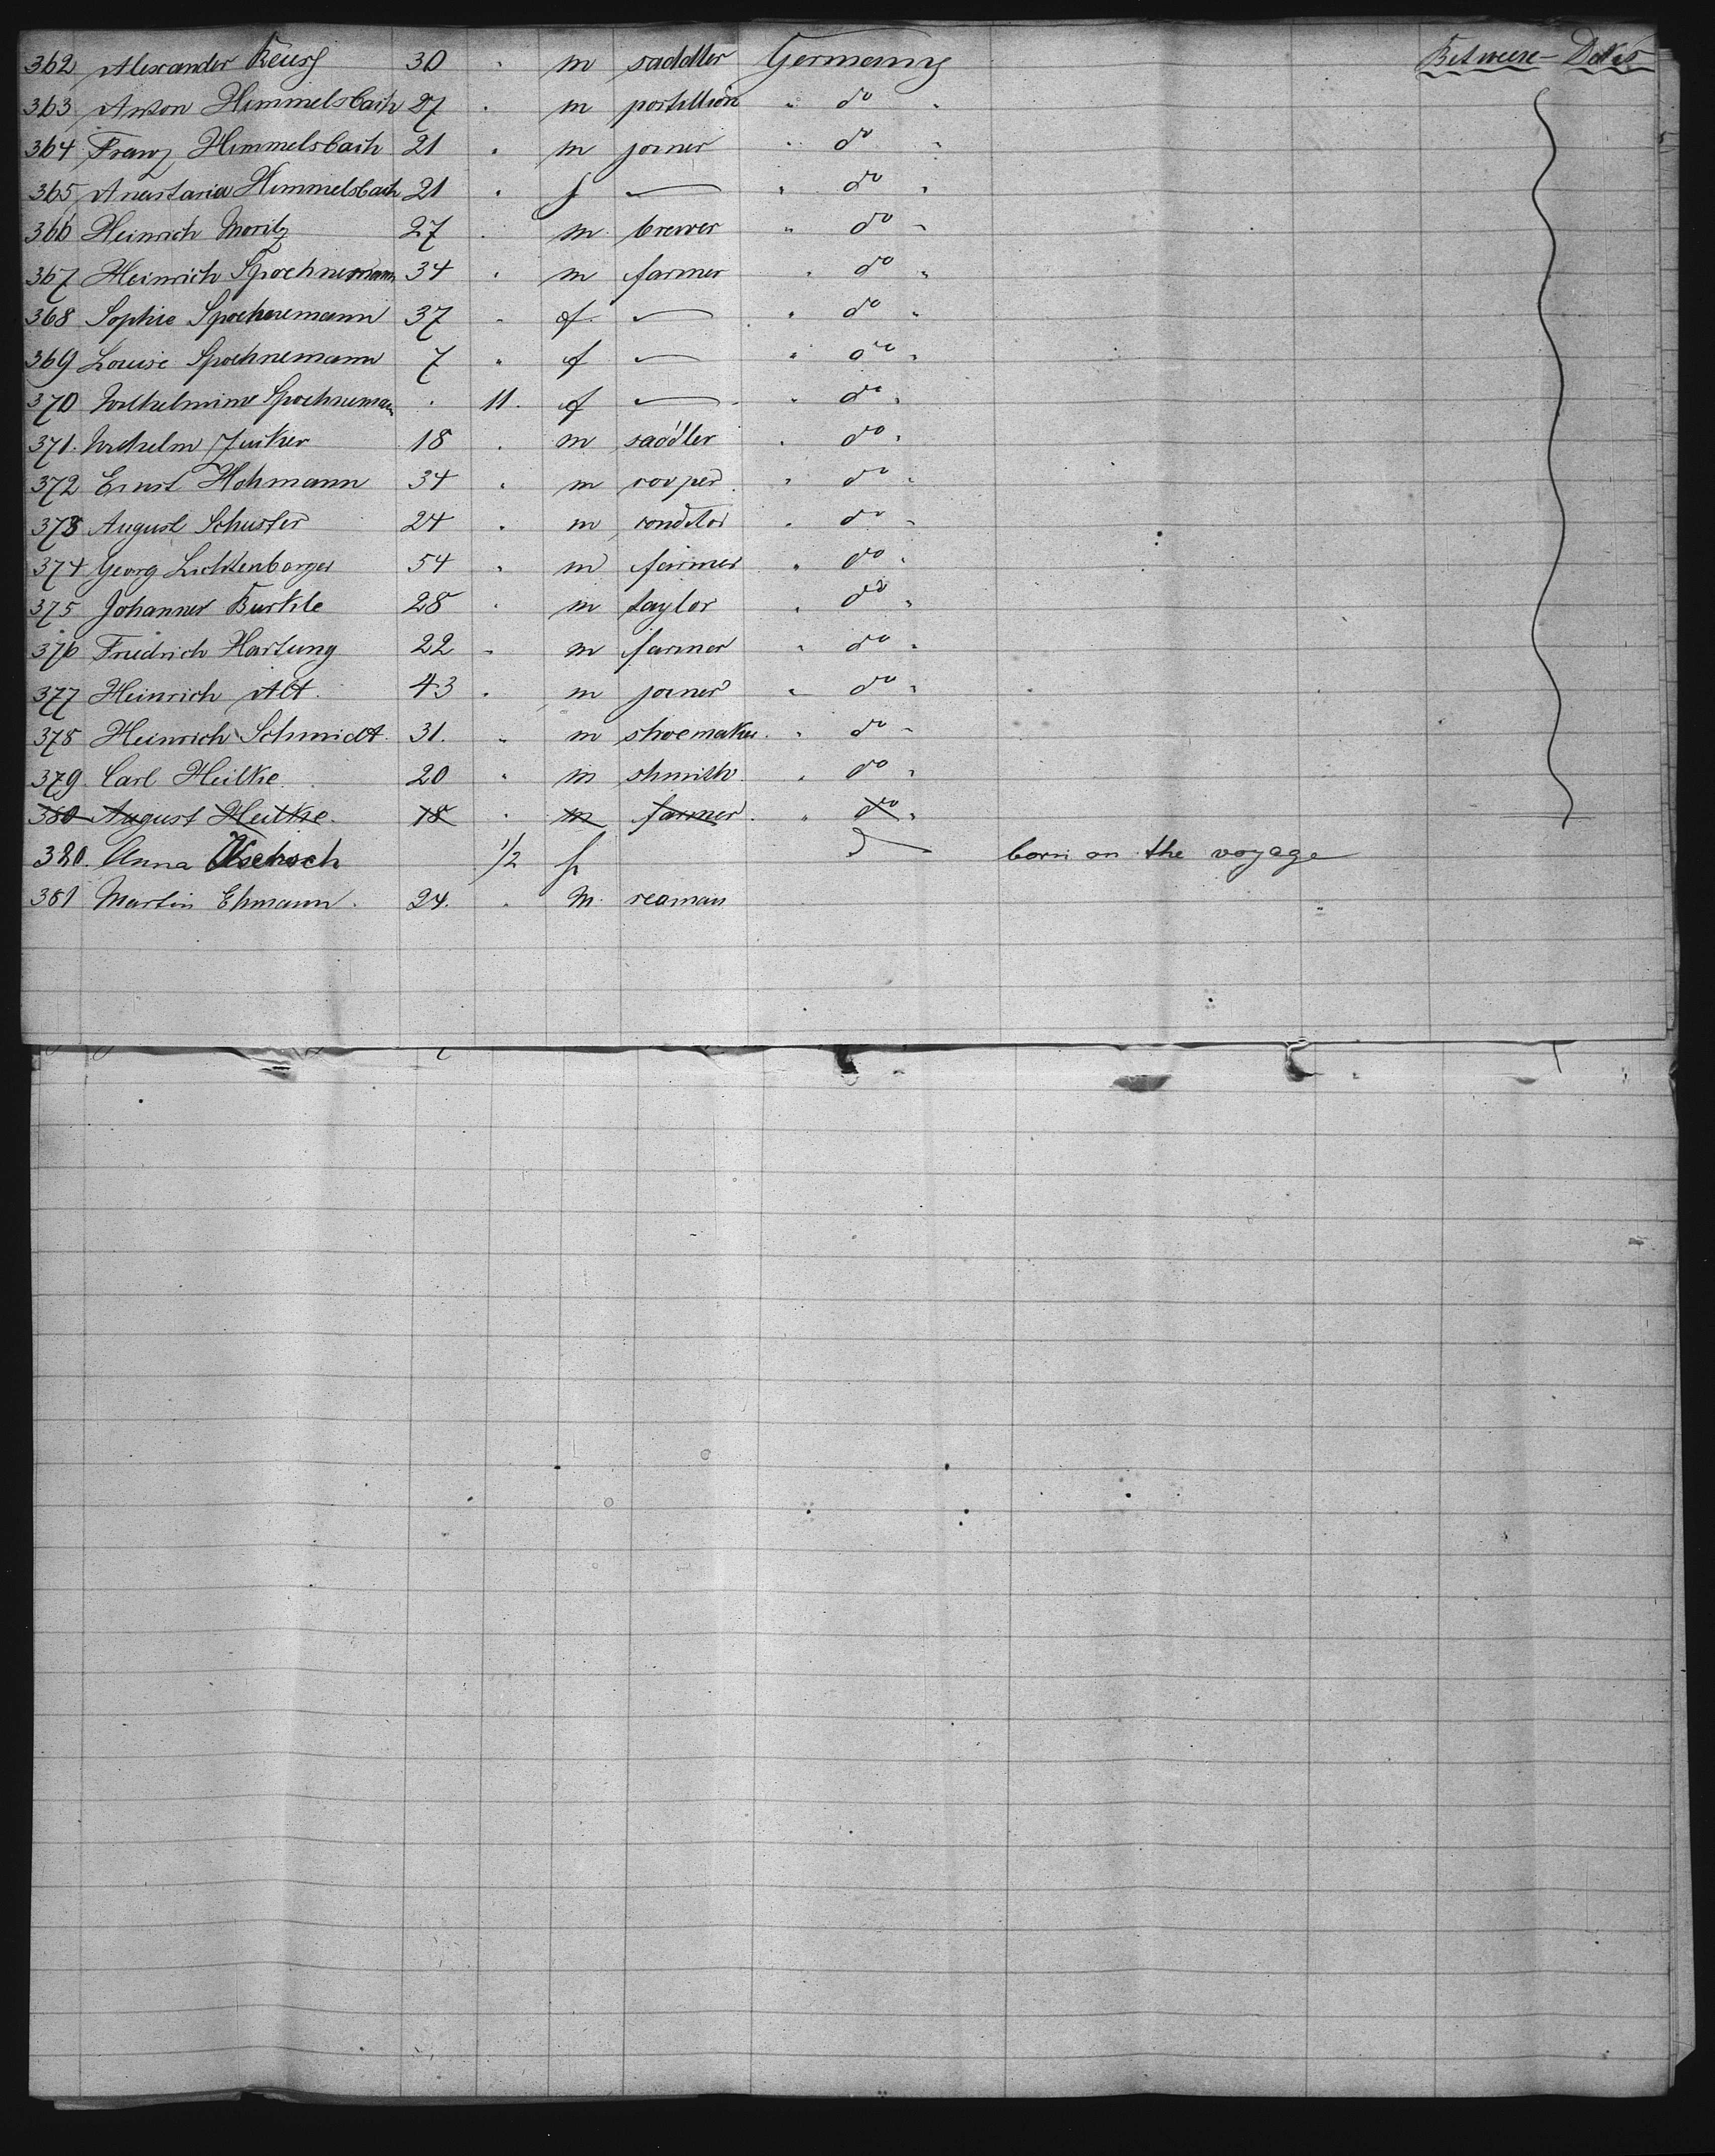 362 Alexander 30 " m saddler Germany Betweene - Dekes
363 Anton Himmelsbach 27 " m postillion " do "
364 Franz Himmelsbach 21 " m joiner " do "
365 Anastasia Himmelsbach 21 " f — " do "
366 Heinrich Moritz 27 " m brewer " do "
367 Heinrich Spoehnemann 34 " m farmer " do "
368 Sophie Spoehnemann 37 " f — " do "
369 Louise Spoehnemann 7 " f — " do "
370 Wilhelmine Spoehneman " 11. f — " do "
371. Wilhelm Junker 18 " m saddler " do "
372 Ernst Hohmann 34 " m cooper " do "
373 August Schuster 24 " m conditor " do "
374 Georg Lichtenberger 54 " m farmer " do "
375 Johannes Burkle 28 " m taylor " do "
376 Friedrich Hartung 22 " m farmer " do "
377 Heinrich Alt. 43 " m joiner " do "
378 Heinrich Schmidt. 31. " m shoemaker. " do "
379. Carl Heitke. 20 " m shmith " do "
380 August Heitke. 18 " m farmer. " do "
380. Anna 1/2 f do born on the voyage
381 Martin Ehmann. 24. " m. seaman